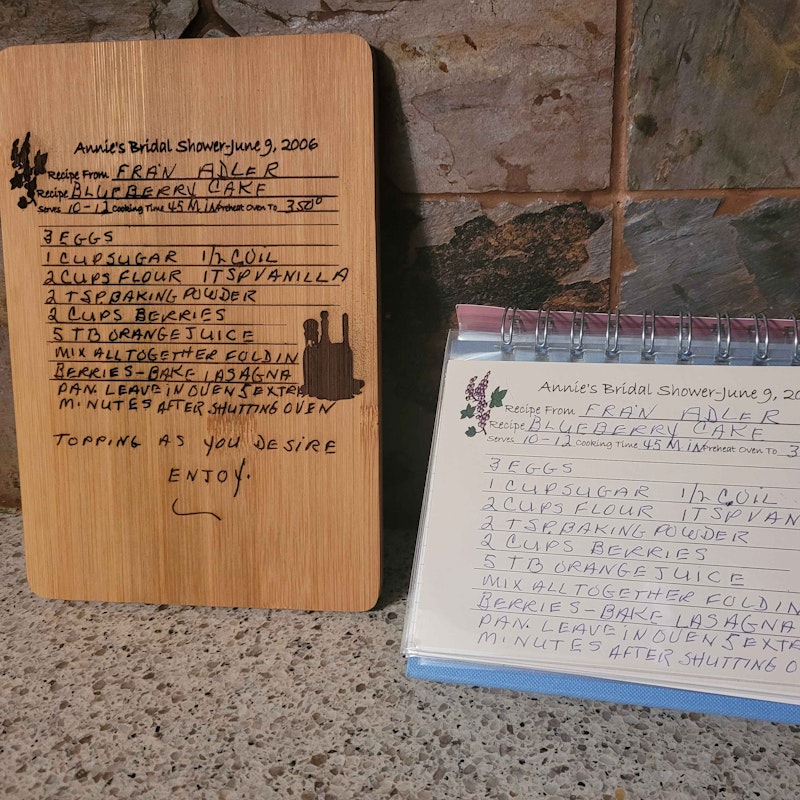 Annie's Bridal Shower-June 9, 2006
Recipe From FRAN ADLER
Recipe BLUEBERRY CAKE
Serves 10-12 Cooking Time 45 MIN Preheat Oven To 350°
3 EGGS
1 CUP SUGAR 1/2 C OIL
2 CUPS FLOUR 1 TSP VANILLA
2 TSP. BAKING POWDER
2 CUPS BERRIES
5 TB ORANGE JUICE
MIX ALL TOGETHER FOLD IN
BERRIES-BAKE LASAGNA
PAN. LEAVE IN OVEN 5 EXTRA
MINUTES AFTER SHUTTING OVEN
TOPPING AS YOU DESIRE
ENJOY.
Annie's Bridal Shower-June 9, 20
Recipe From FRAN ADLER
Recipe BLUEBERRY CAKE
Serves 10-12 Cooking Time 45 MIN Preheat Oven To 3
3 EGGS
1 CUP SUGAR 1/2 C OIL
2 CUPS FLOUR 1 TSP VAN
2 TSP. BAKING POWDER
2 CUPS BERRIES
5 TB ORANGE JUICE
MIX ALL TOGETHER FOLD IN
BERRIES-BAKE LASAGNA
PAN. LEAVE IN OVEN 5 EXTR
MINUTES AFTER SHUTTING O